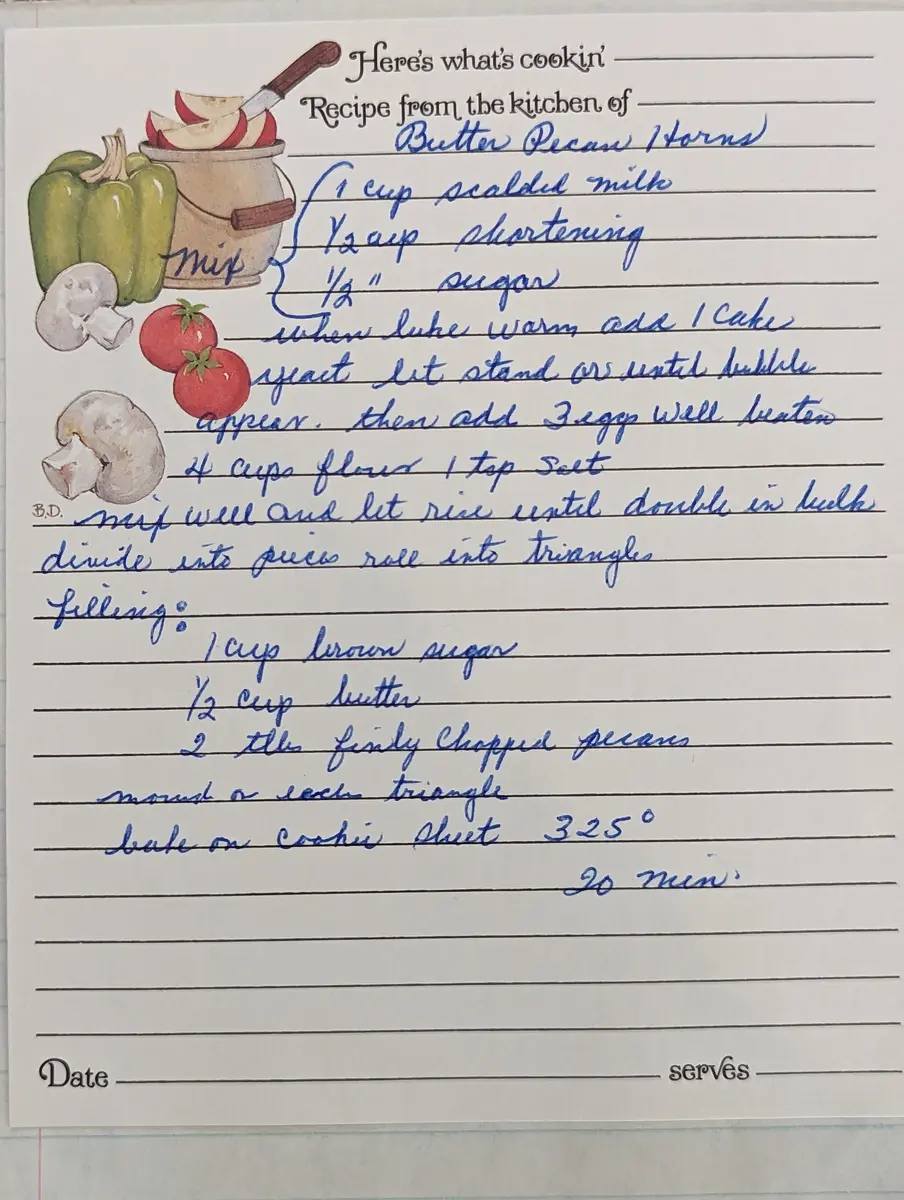 Here's what's cookin'
Recipe from the kitchen of
Butter Pecan Horns
1 cup scalded milk
1/2 cup shortening
mix
1/2 " sugar
when luke warm add 1 cake
yeast let stand or until bubble
appear. then add 3 eggs well beaten
4 cups flour 1 tsp salt
B.D.
mix well and let rise until double in bulk
divide into pieces roll into triangles
filling:
1 cup brown sugar
1/2 cup butter
2 tbls finly chopped pecans
mound on each triangle
bake on cookie sheet 325°
20 min.
Date
serves